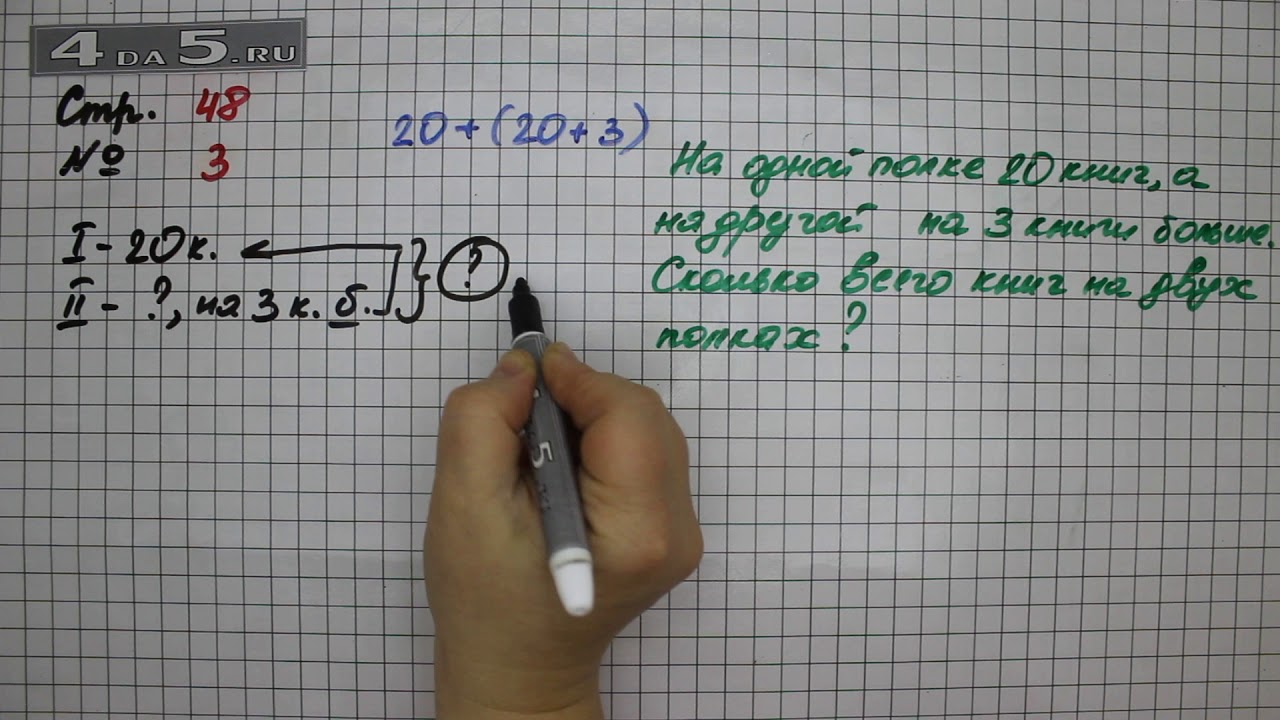 4DA5.RU
Стр. 48
№ 3
20+(20+3)
I - 20 к.
II - ?, на 3 к. б.
?
На одной полке 20 книг, а
на другой на 3 книги больше.
Сколько всего книг на двух
полках?
5